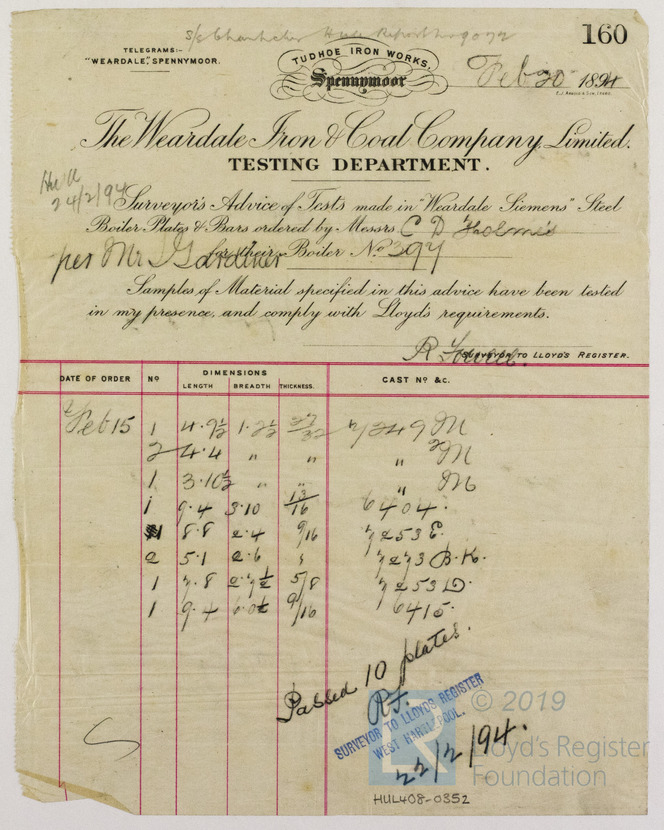 160
TELEGRAMS:-
"WEARDALE," SPENNYMOOR.
TUDHOE IRON WORKS,
Spennymoor
Feb 20 1894
The Weardale Iron & Coal Company, Limited.
TESTING DEPARTMENT.
Hull
24/2/94
Surveyor's Advice of Tests made in "Weardale Siemens" Steel
Boiler Plates & Bars ordered by Messrs C D Holmes
per Mr Gardiner for their Boiler No 397
Samples of Material specified in this advice have been tested
in my presence, and comply with Lloyd's requirements.
R
SURVEYOR TO LLOYD'S REGISTER.
DATE OF ORDER No DIMENSIONS LENGTH BREADTH THICKNESS. CAST No &c.
Feb 15 1 4·9½ 1·2½ 27/32 7249 M
2 4·4 " " " M
1 3·10½ " " " M
1 9·4 3·10 13/16 6404
1 8·8 2·4 9/16 7253 E.
2 5·1 2·6 7273 B.K.
1 7·8 2·7½ 5/8 7253 D.
1 9·4 9/16 6415
Passed 10 plates.
SURVEYOR TO LLOYDS REGISTER
WEST HARTLEPOOL.
22/2/94.
LR
© 2019
Lloyd's Register
Foundation
HUL408-0352